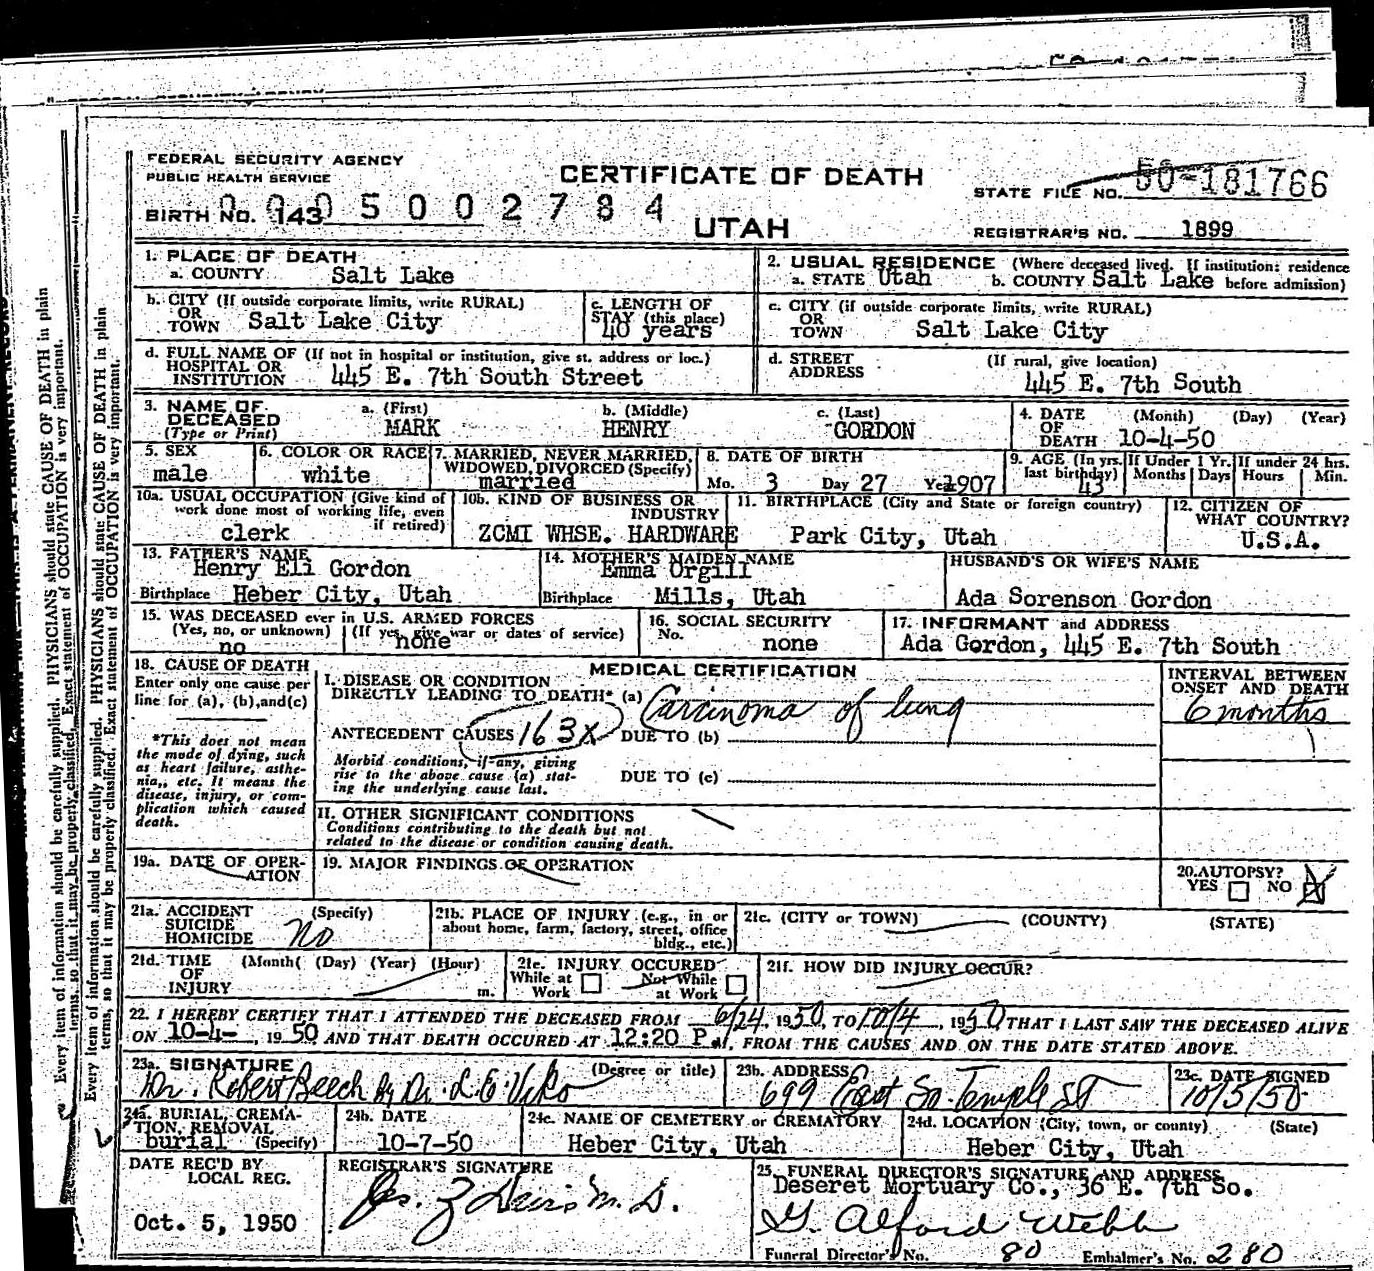 FEDERAL SECURITY AGENCY
PUBLIC HEALTH SERVICE
CERTIFICATE OF DEATH
UTAH
STATE FILE NO. 50-181766
BIRTH NO. 143
0005002784
REGISTRAR'S NO. 1899
1. PLACE OF DEATH
a. COUNTY Salt Lake
2. USUAL RESIDENCE (Where deceased lived. If institution: residence before admission)
a. STATE Utah b. COUNTY Salt Lake
b. CITY (If outside corporate limits, write RURAL)
OR TOWN Salt Lake City
c. LENGTH OF STAY (this place)
40 years
c. CITY (if outside corporate limits, write RURAL)
OR TOWN Salt Lake City
d. FULL NAME OF (If not in hospital or institution, give st. address or loc.)
HOSPITAL OR INSTITUTION 445 E. 7th South Street
d. STREET ADDRESS (If rural, give location)
445 E. 7th South
3. NAME OF DECEASED (Type or Print)
a. (First) MARK
b. (Middle) HENRY
c. (Last) GORDON
4. DATE OF DEATH (Month) (Day) (Year)
10-4-50
5. SEX
male
6. COLOR OR RACE
white
7. MARRIED, NEVER MARRIED, WIDOWED, DIVORCED (Specify)
married
8. DATE OF BIRTH
Mo. 3 Day 27 Yr. 1907
9. AGE (In yrs. last birthday) 43
If Under 1 Yr. Months Days
If under 24 hrs. Hours Min.
10a. USUAL OCCUPATION (Give kind of work done most of working life, even if retired)
clerk
10b. KIND OF BUSINESS OR INDUSTRY
ZCMI WHSE. HARDWARE
11. BIRTHPLACE (City and State or foreign country)
Park City, Utah
12. CITIZEN OF WHAT COUNTRY?
U.S.A.
13. FATHER'S NAME
Henry Eli Gordon
Birthplace Heber City, Utah
14. MOTHER'S MAIDEN NAME
Emma Orgill
Birthplace Mills, Utah
HUSBAND'S OR WIFE'S NAME
Ada Sorenson Gordon
15. WAS DECEASED ever in U.S. ARMED FORCES
(Yes, no, or unknown) (If yes, give war or dates of service)
no none
16. SOCIAL SECURITY
No. none
17. INFORMANT and ADDRESS
Ada Gordon, 445 E. 7th South
18. CAUSE OF DEATH
Enter only one cause per line for (a), (b), and (c)
*This does not mean the mode of dying, such as heart failure, asthenia,, etc. It means the disease, injury, or complication which caused death.
MEDICAL CERTIFICATION
I. DISEASE OR CONDITION
DIRECTLY LEADING TO DEATH* (a) Carcinoma of lung
ANTECEDENT CAUSES 163X DUE TO (b)
Morbid conditions, if any, giving rise to the above cause (a) stating the underlying cause last.
DUE TO (c)
INTERVAL BETWEEN ONSET AND DEATH
6 months
II. OTHER SIGNIFICANT CONDITIONS
Conditions contributing to the death but not related to the disease or condition causing death.
19a. DATE OF OPERATION
19. MAJOR FINDINGS OF OPERATION
20. AUTOPSY?
YES NO X
21a. ACCIDENT SUICIDE HOMICIDE (Specify)
No
21b. PLACE OF INJURY (e.g., in or about home, farm, factory, street, office bldg., etc.)
21c. (CITY or TOWN) (COUNTY) (STATE)
21d. TIME OF INJURY (Month( (Day) (Year) (Hour) m.
21e. INJURY OCCURED
While at Work Not While at Work
21f. HOW DID INJURY OCCUR?
22. I HEREBY CERTIFY THAT I ATTENDED THE DECEASED FROM 6/24, 1950, TO 10/4, 1950, THAT I LAST SAW THE DECEASED ALIVE
ON 10-4-, 1950 AND THAT DEATH OCCURED AT 12:20 P.M., FROM THE CAUSES AND ON THE DATE STATED ABOVE.
23a. SIGNATURE (Degree or title)
Dr. Robert Beech by Dr. L.E. Viko
23b. ADDRESS
699 East So. Temple St
23c. DATE SIGNED
10/5/50
24a. BURIAL, CREMATION, REMOVAL (Specify)
burial
24b. DATE
10-7-50
24c. NAME OF CEMETERY or CREMATORY
Heber City, Utah
24d. LOCATION (City, town, or county) (State)
Heber City, Utah
DATE REC'D BY LOCAL REG.
Oct. 5, 1950
REGISTRAR'S SIGNATURE
M.D.
25. FUNERAL DIRECTOR'S SIGNATURE AND ADDRESS
Deseret Mortuary Co., 36 E. 7th So.
G. Alford Webb
Funeral Director's No. 80 Embalmer's No. 280
Every item of information should be carefully supplied. PHYSICIANS should state CAUSE OF DEATH in plain terms, so that it may be properly classified. Exact statement of OCCUPATION is very important.
Every item of information should be carefully supplied. PHYSICIANS should state CAUSE OF DEATH in plain terms, so that it may be properly classified. Exact statement of OCCUPATION is very important.